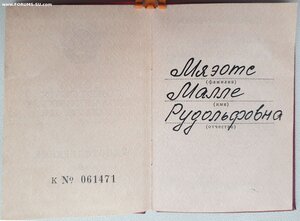 www.FORUMS-SU.com
Мяэотс
(фамилия)
Малле
(имя)
Рудольфовна
(отчество)
К № 061471